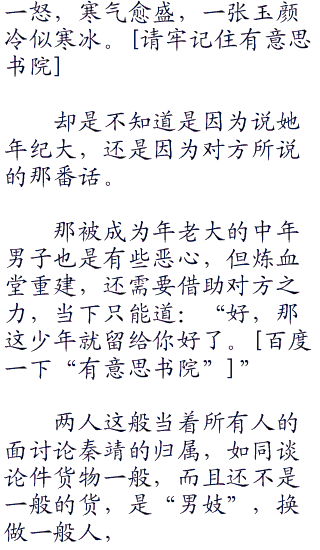 一怒，寒气愈盛，一张玉颜
冷似寒冰。[请牢记住有意思
书院]
却是不知道是因为说她
年纪大，还是因为对方所说
的那番话。
那被成为年老大的中年
男子也是有些恶心，但炼血
堂重建，还需要借助对方之
力，当下只能道：“好，那
这少年就留给你好了。[百度
一下“有意思书院”]”
两人这般当着所有人的
面讨论秦靖的归属，如同谈
论件货物一般，而且还不是
一般的货，是“男妓”，换
做一般人，